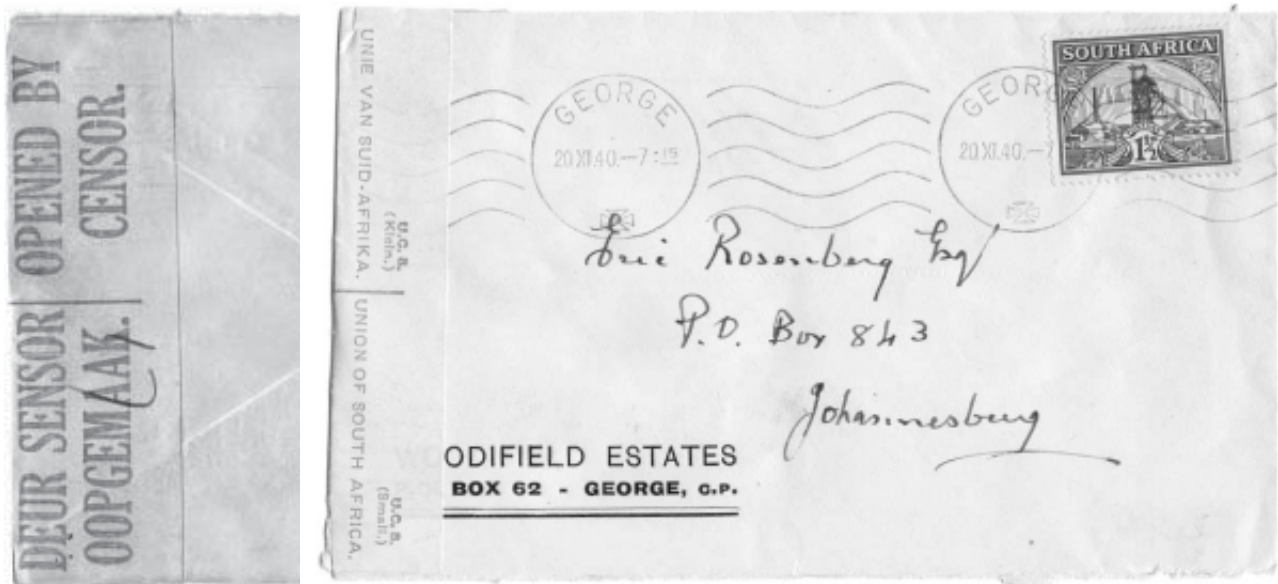 DEUR SENSOR
OOPGEMAAK.
OPENED BY
CENSOR.
UNIE VAN SUID-AFRIKA.
U.C. 8.
(Klein.)
UNION OF SOUTH AFRICA.
U.C. 8.
(Small.)
GEORGE
20 XI.40.—7:15
GEORG
20 XI.40.—7
SOUTH AFRICA
1½
Eric Rosenberg Esq
P.O. Box 843
Johannesburg
WOODIFIELD ESTATES
BOX 62 - GEORGE, C.P.